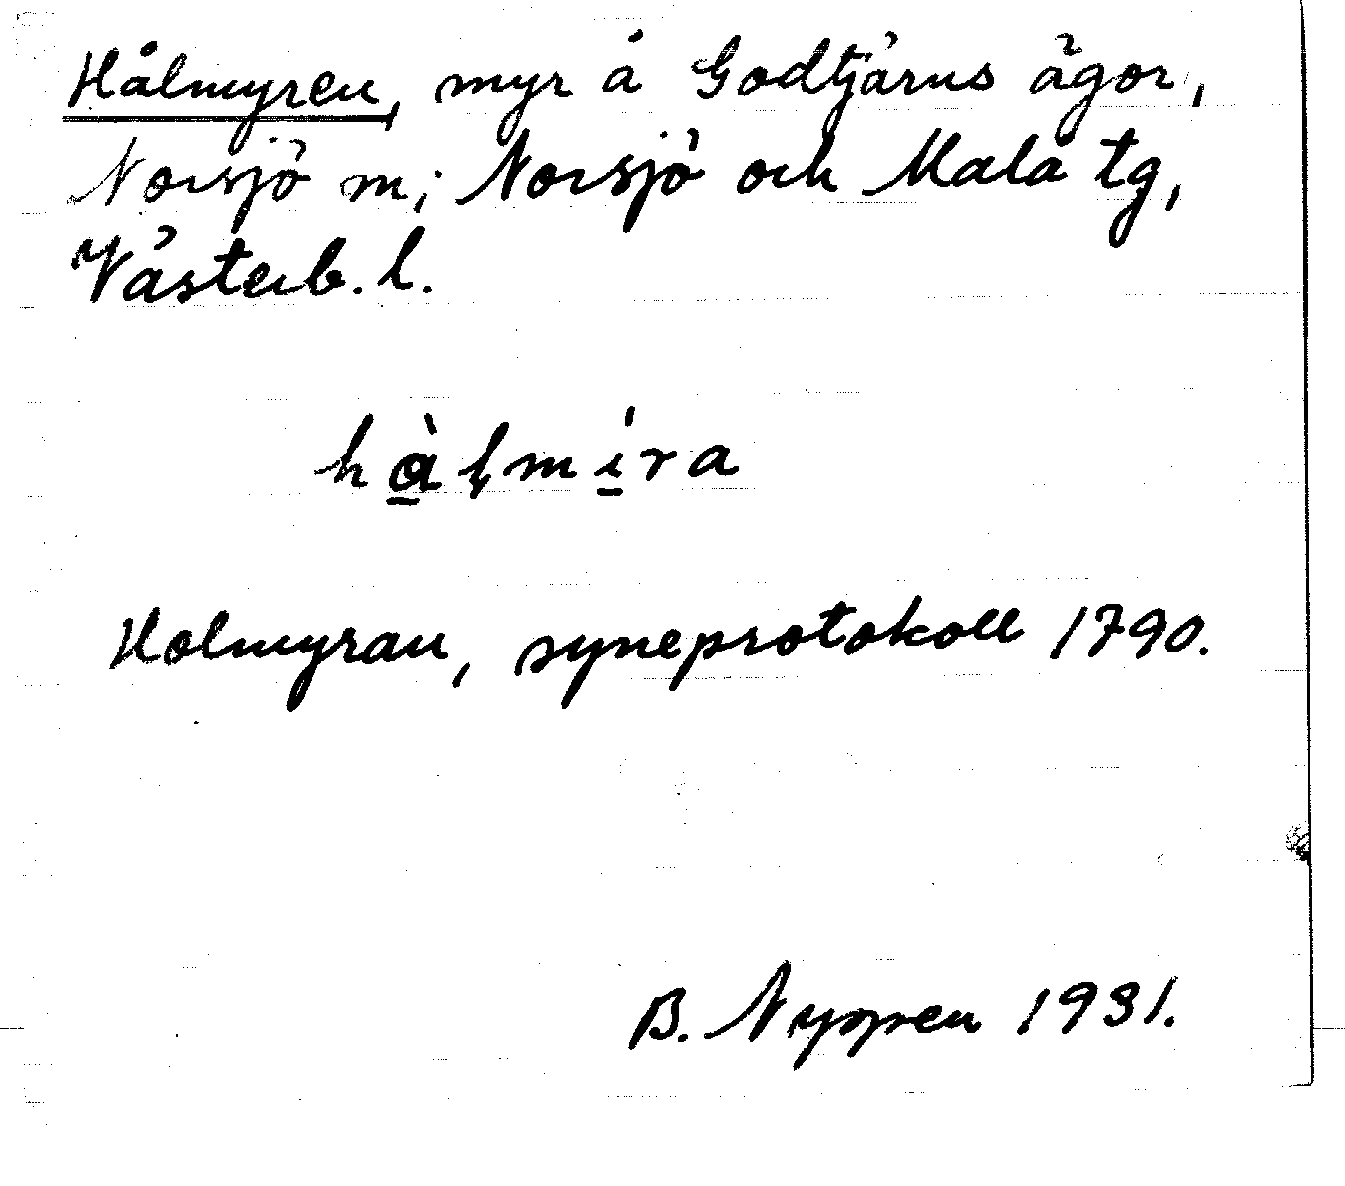 Hålmyren, myr å Godtjärns ägor,
Norsjö m; Norsjö och Malå tg,
Västerb. l.
hàḷmíra
Holmyran, syneprotokoll 1790.
B. Nyppen 1931.